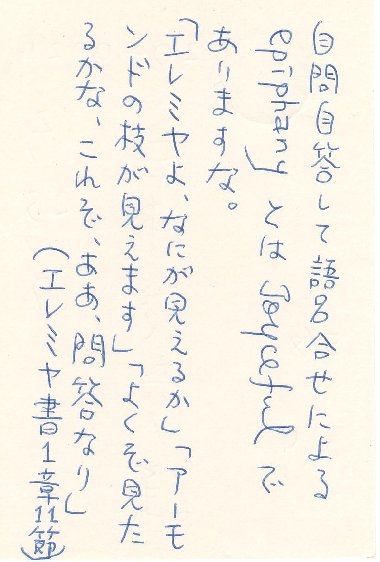 自問自答して語呂合せによる
epiphany」とは gracefulで
ありますな。
「エレミヤよ、なにが見えるか」「アーモ
ンドの枝が見えます」「よくぞ見た
るかな、これぞ、ああ、問答なり」
(エレミヤ書1章11節)